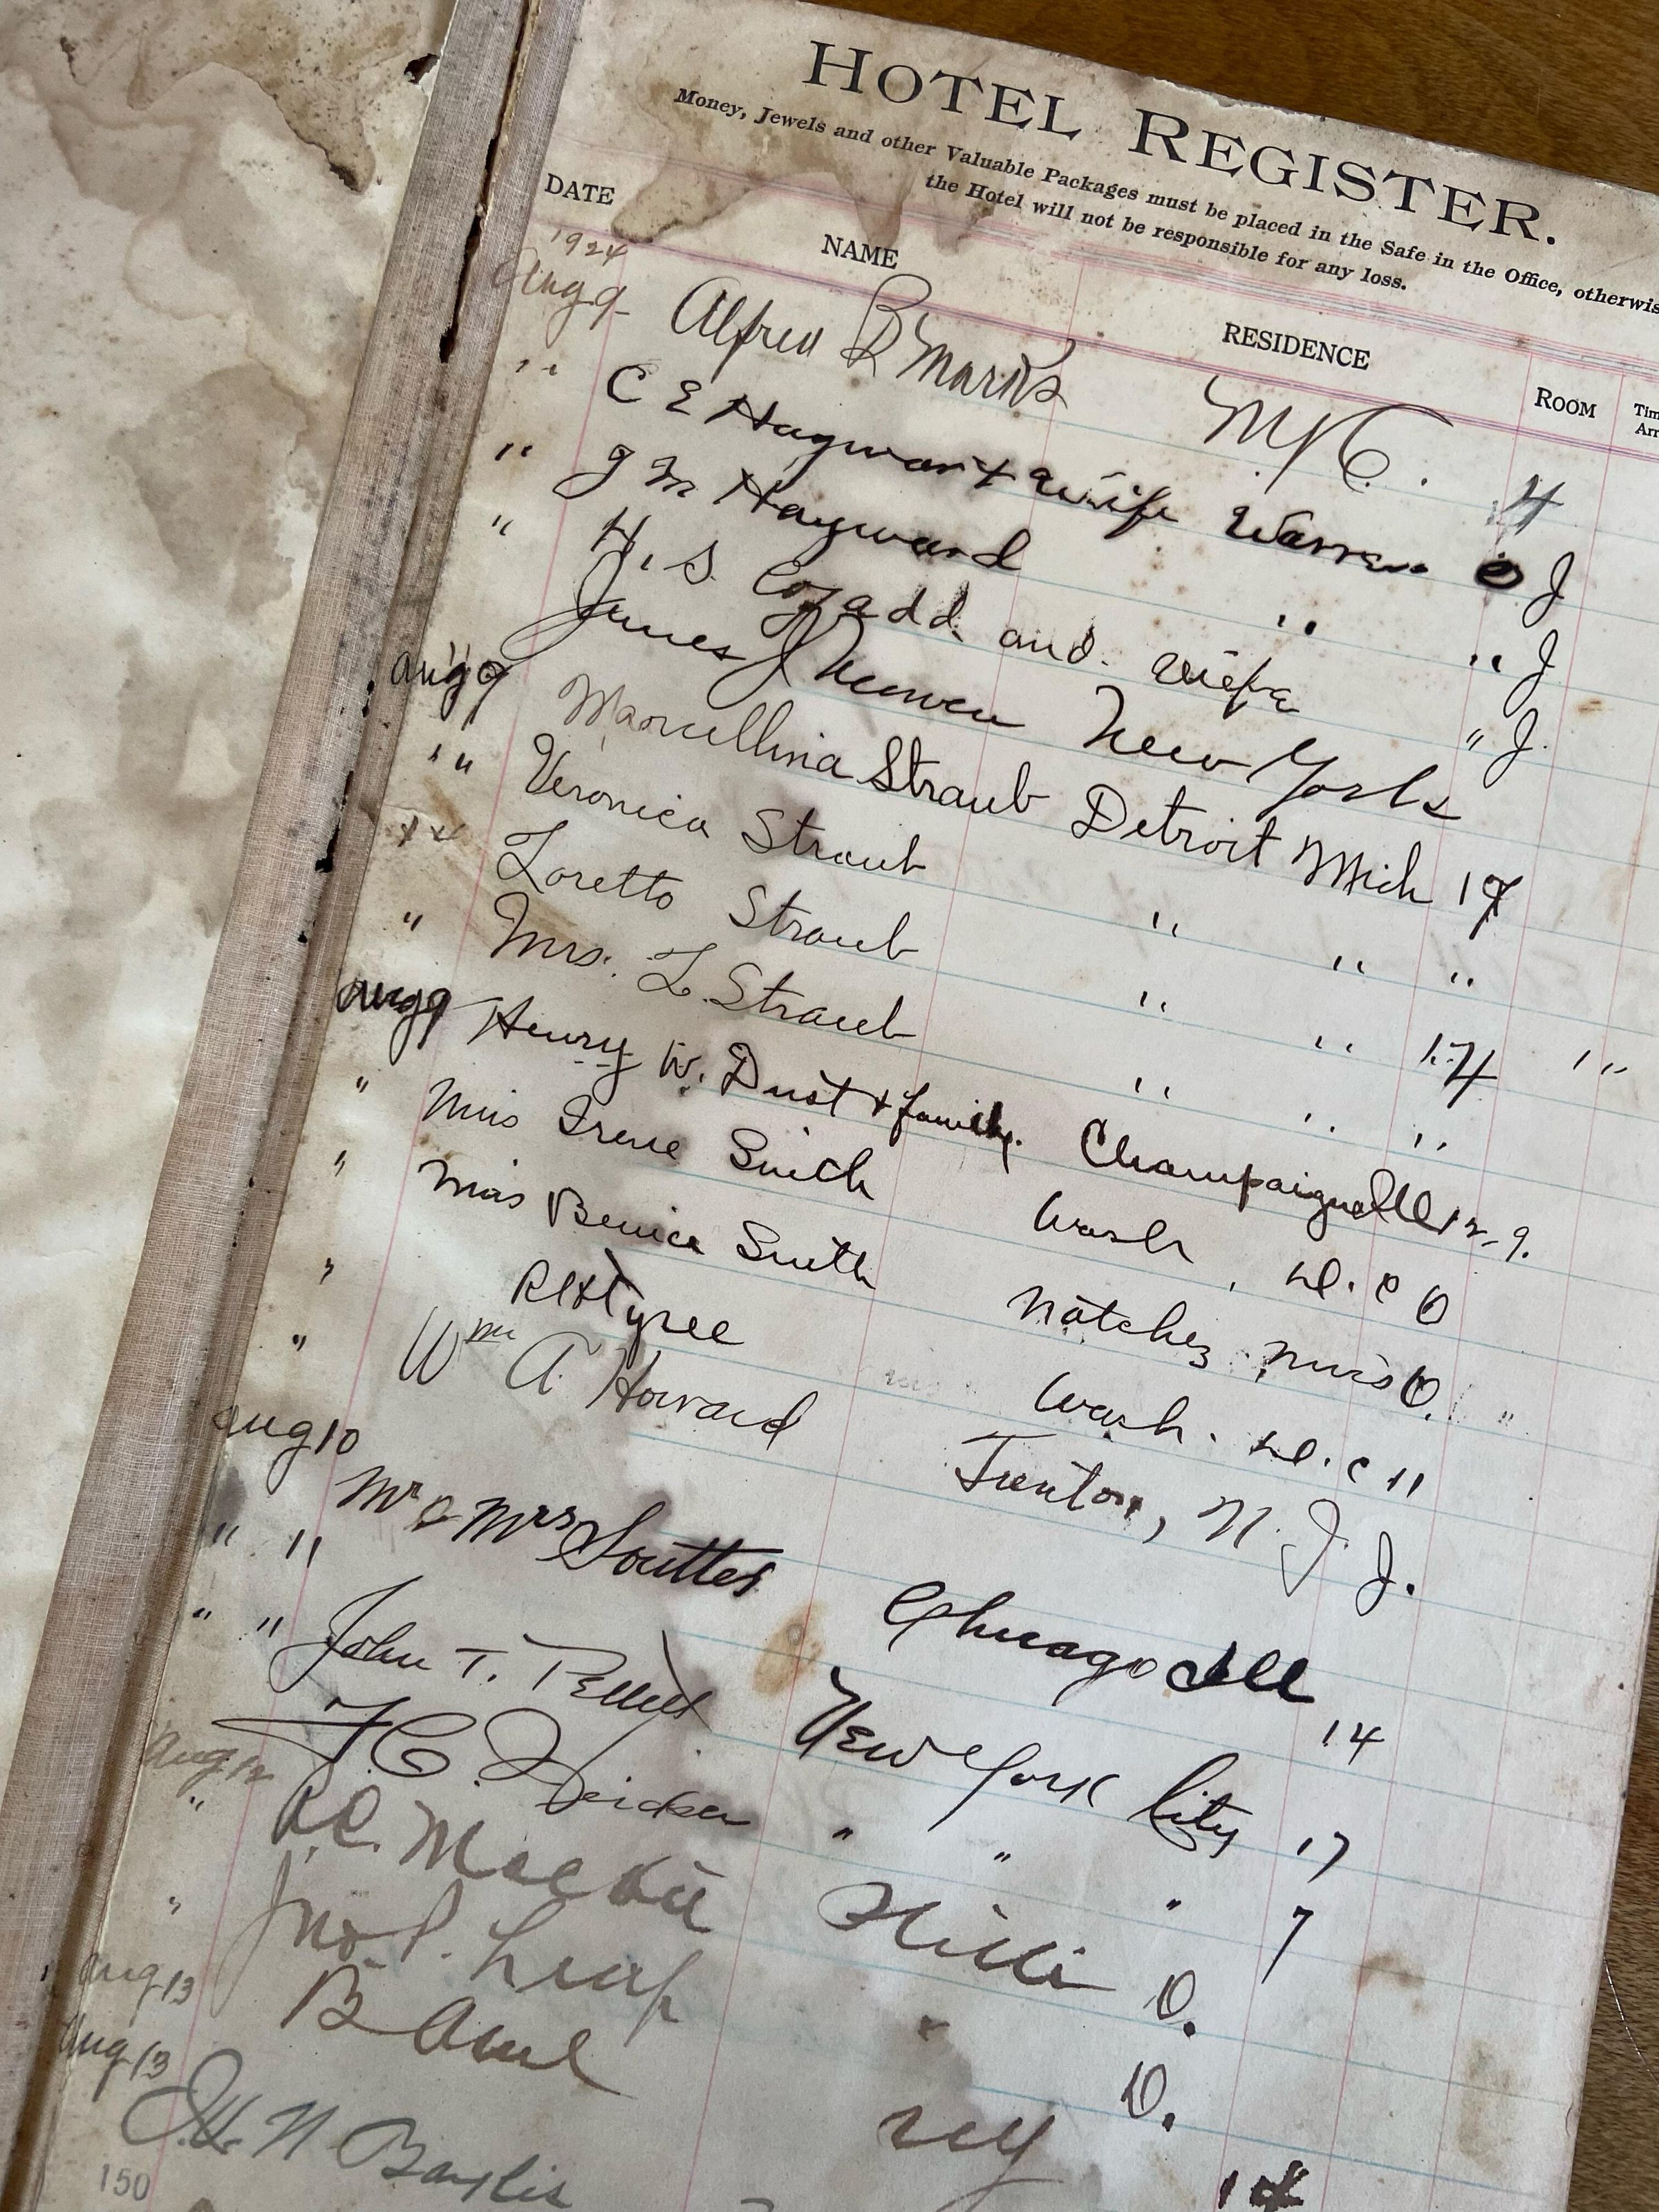 HOTEL REGISTER.
Money, Jewels and other Valuable Packages must be placed in the Safe in the Office, otherwis
the Hotel will not be responsible for any loss.
DATE NAME RESIDENCE ROOM Tim Arr
1924
Aug 9 Alfred B Marks N.Y.C. 4
" C E Hayward & Wife Warren O J
" J M Hayward " " J
" H. S. Cozadd and wife " J.
James J New York
Aug 9 Marcellina Straub Detroit Mich 17
" Veronica Straub " " "
" Loretto Straub " " 17 "
" Mrs. L. Straub " " "
Aug 9 Henry W. Dust & family. Champaign Ill 12-9.
" Miss Irene Smith Wash. D.C O
" Miss Bernice Smith Natchez Miss O.
" Tyree Wash. D.C 11
" Wm A. Howard Trenton, N.J. J.
Aug 10 Mr & Mrs Souttes Chicago Ill 14
" " John T. New York City 17
" " F. C. " " " 7
Aug 12 O.
" Jno. P. Leap O.
Aug 13 B NY 14
Aug 13 N Baylis
150